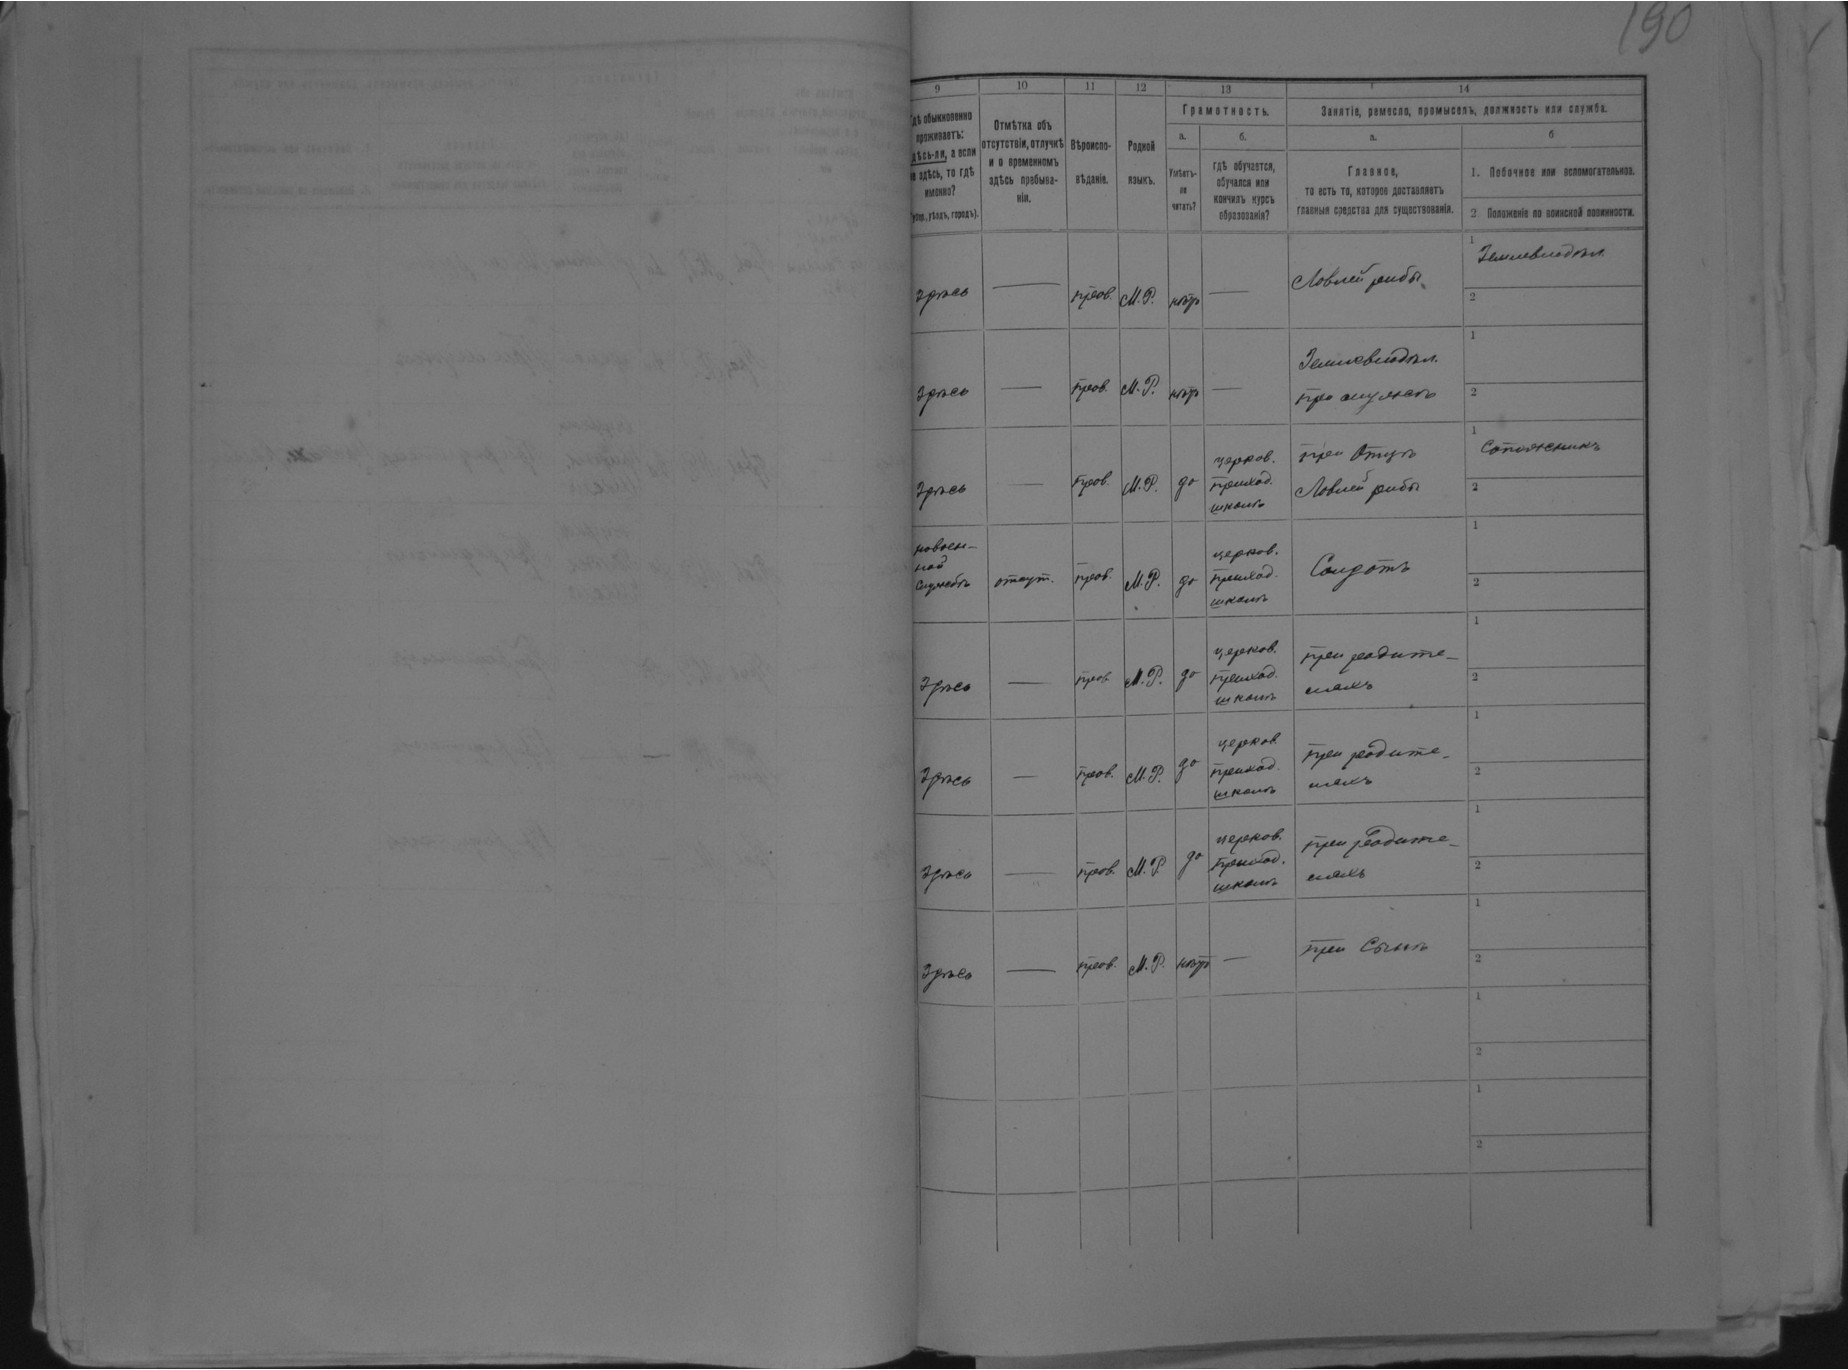 190
9 10 11 12 13 14
Гдѣ обыкновенно проживаетъ: здѣсь-ли, а если не здѣсь, то гдѣ именно? (губер., уѣздъ, городъ).
Отмѣтка объ отсутствіи, отлучкѣ и о временномъ здѣсь пребываніи.
Вѣроиспо-вѣданіе.
Родной языкъ.
Грамотность.
а.
Умѣетъ-ли читать?
б.
Гдѣ обучается, обучался или кончилъ курсъ образованія?
Занятіе, ремесло, промыселъ, должность или служба.
а.
Главное,
то есть то, которое доставляетъ
главныя средства для существованія.
б
1. Побочное или вспомогательное.
2 Положеніе по воинской повинности.
здѣсь — прав. М.Р. нѣтъ — Ловлей рыбы 1 Земледѣл. 2
здѣсь — прав. М.Р. нѣтъ — Земледѣл. при 1 2
здѣсь — прав. М.Р. да церков. приход. школѣ при Отцѣ Ловлей рыбы 1 2
на воен-ной службѣ отсут. прав. М.Р. да церков. приход. школѣ Солдатъ 1 2
здѣсь — прав М.Р. да церков. приход. школѣ при родите-ляхъ 1 2
здѣсь — прав. М.Р. да церков. приход. школѣ при родите-ляхъ 1 2
здѣсь — прав. М.Р. да церков. приход. школѣ при родите-ляхъ 1 2
здѣсь — прав. М.Р. нѣтъ — при Сынѣ 1 2
1 2
1 2